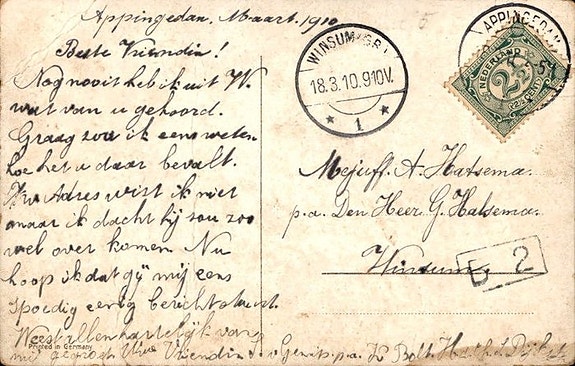 Appingedam, Maart. 1910
Beste Vriendin!
Nog nooit heb ik uit W.
wat van u gehoord.
Graag zou ik eens weten
hoe het u daar bevalt.
Uw Adres wist ik niet
maar ik dacht hij zou zoo
wel over komen. Nu
hoop ik dat gij mij eens
spoedig eenig bericht stuurt.
Wees allenhartelijk van
mij gegroet Uwe Vriendin
p.a.
Printed in Germany
WINSUM (GR.)
18.3.10.9-10V.
1
APPINGEDAM
NEDERLAND
2½
CENT
Mejuff. A. Halsema.
p.a. Den Heer G. Halsema.
Winsum.
B 2